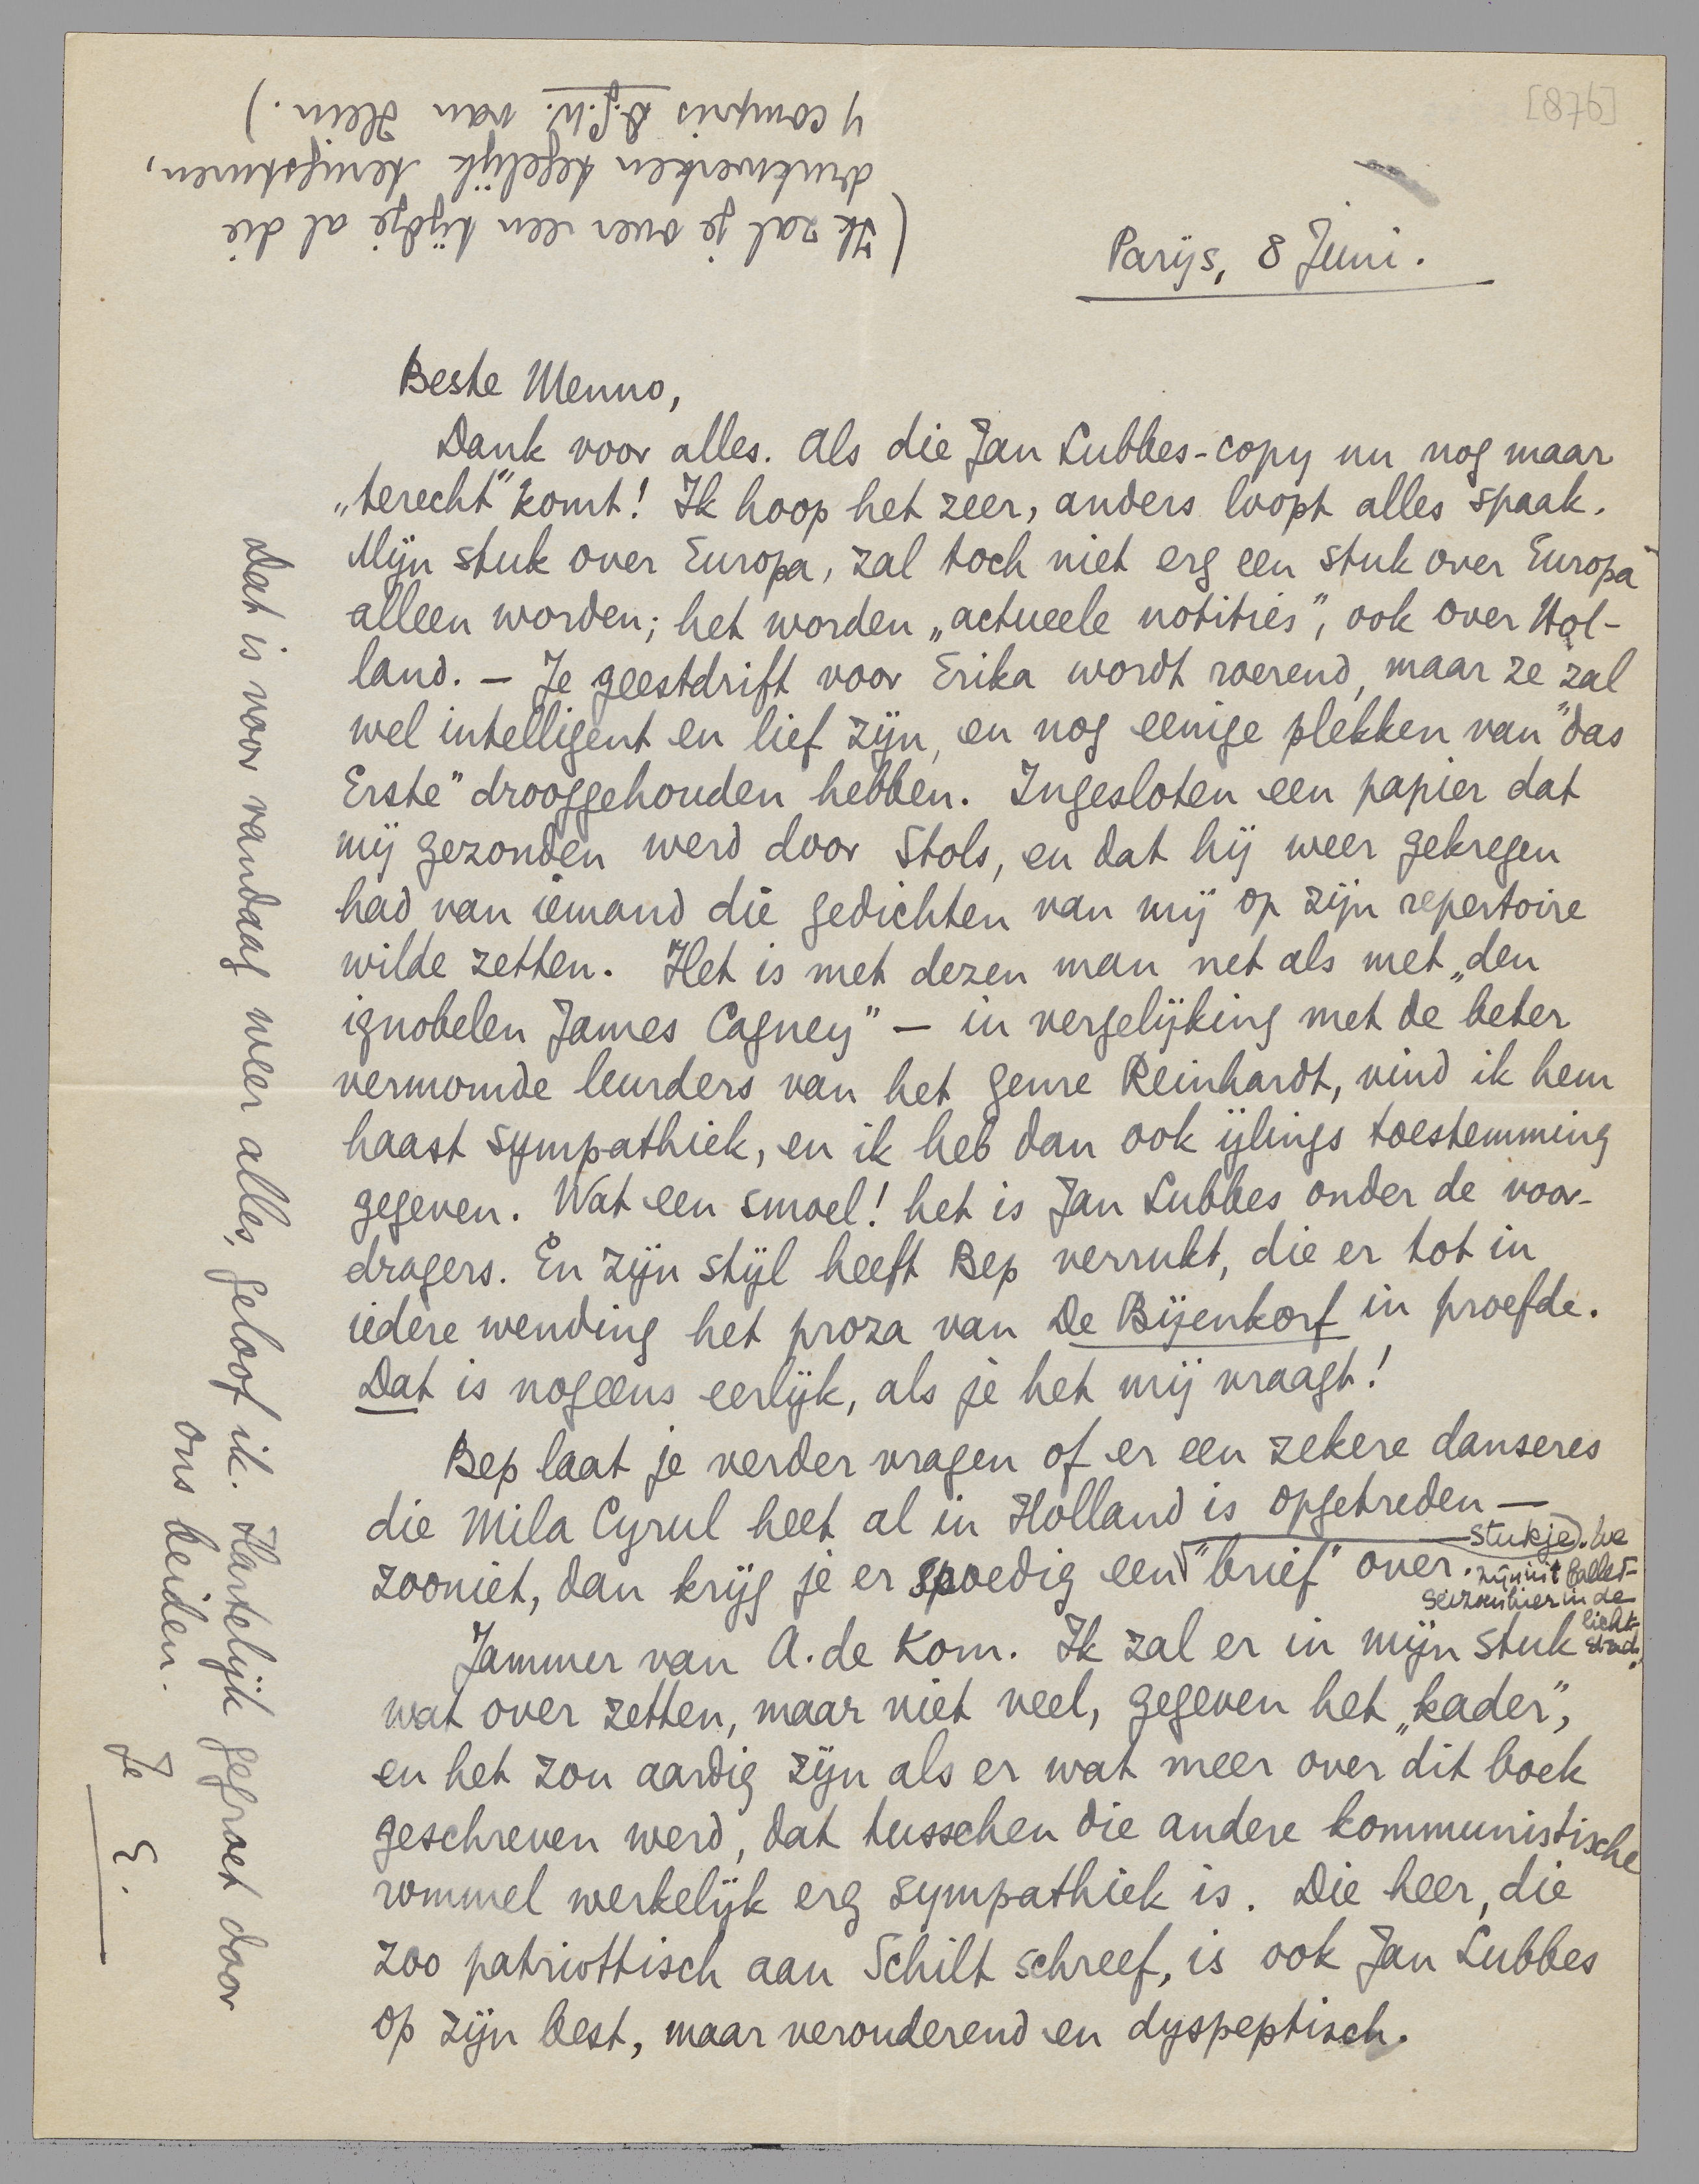 [876]
Parijs, 8 Juni.
Beste Menno,
Dank voor alles. Als die Jan Lubbes-copy nu nog maar
„terecht” komt! Ik hoop het zeer, anders loopt alles spaak.
Mijn stuk over Europa, zal toch niet erg een stuk over Europa
alleen worden; het worden „actueele notities”, ook over Hol-
land. — Je geestdrift voor Erika wordt roerend, maar ze zal
wel intelligent en lief zijn, en nog eenige plekken van "das
Erste" drooggehouden hebben. Ingesloten een papier dat
mij gezonden werd door Stols, en dat hij weer gekregen
had van iemand die gedichten van mij op zijn repertoire
wilde zetten. Het is met dezen man net als met „den
ignobelen James Cagney” — in vergelijking met de beter
vermomde leurders van het genre Reinhardt, vind ik hem
haast sympathiek, en ik heb dan ook ijlings toestemming
gegeven. Wat een smoel! het is Jan Lubbes onder de voor-
dragers. En zijn stijl heeft Bep verrukt, die er tot in
iedere wending het proza van De Bijenkorf in proefde.
Dat is nogeens eerlijk, als je het mij vraagt!
Bep laat je verder vragen of er een zekere danseres
die Mila Cyrul heet al in Holland is opgetreden —
zooniet, dan krijg je er spoedig een "brief" over.
stukje). We
zijn in 't ballet-
seizoen hier in de
licht-
stad.
Jammer van A. de Kom. Ik zal er in mijn stuk
wat over zetten, maar niet veel, gegeven het „kader”,
en het zou aardig zijn als er wat meer over dit boek
geschreven werd, dat tusschen die andere kommunistische
rommel werkelijk erg sympathiek is. Die heer, die
zoo patriottisch aan Schilt schreef, is ook Jan Lubbes
op zijn best, maar verouderend en dyspeptisch.
Dat is voor vandaag weer alles, geloof ik. Hartelijk gegroet door
ons beiden.
Je
E.
(Ik zal je over een tijdje al die
drukwerken tegelijk terugsturen,
y compris D.G.W. van Hein.)